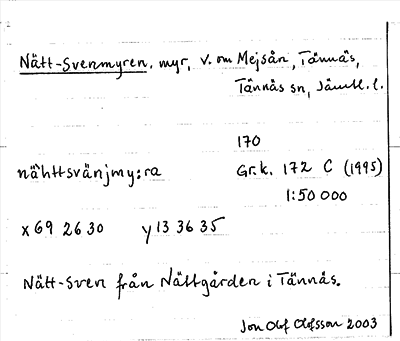 Nätt-Svenmyren, myr, V. om Mejsån, Tännäs,
Tännäs sn, Jämtl. l.
170
nähttsvänjmy:ra Gr.k. 172 C (1995)
1:50 000
x 69 26 30 y 13 36 35
Nätt-Sven från Nättgården i Tännäs.
Jon Olof Olofsson 2003